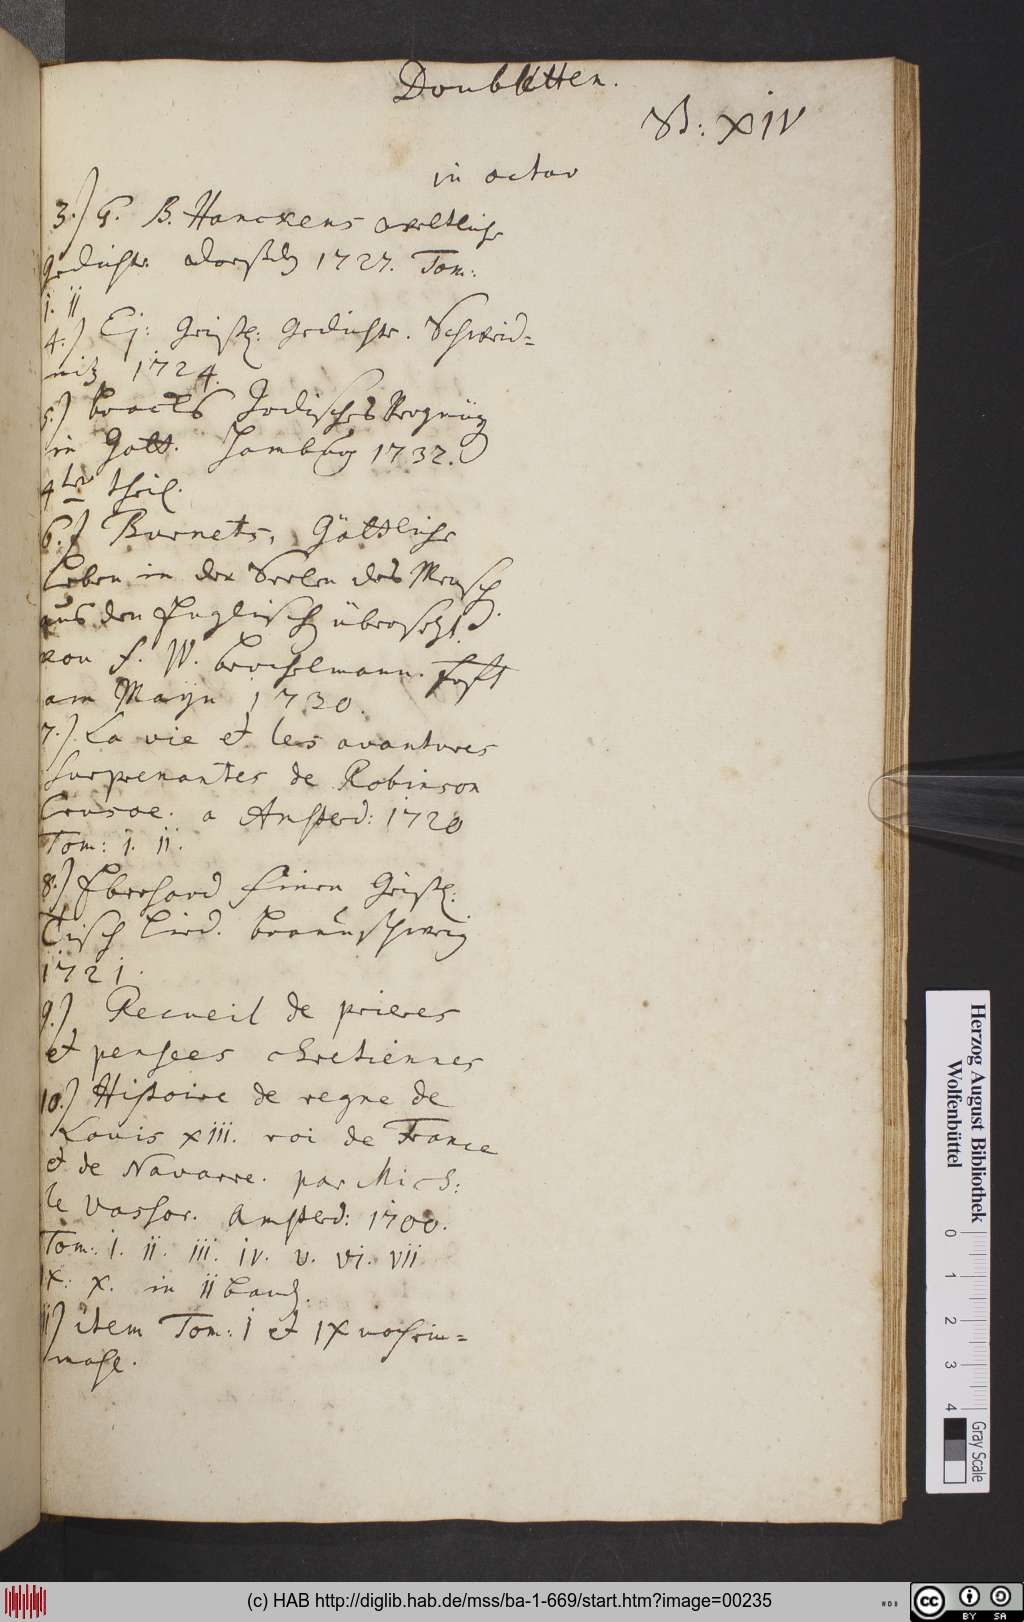 Doubletten.
B: XIV
in octav
3.) G. B. Hanckens weltliche
gedichte Dreßdn 1727. Tom:
i. ii
4.) Ej: Geistl: Gedichte. Schweid=
nitz 1724.
5.) Brocks Irdisches Vergnüg
in Gott. Hambbg 1732.
4ter theil.
6.) Burnets, Göttliche
Leben in der Seelen des Mensch.
aus den Englisch übersetzt
von F. W. Berchelmann. Frft
am Mayn 1730.
7.) La vie et les avantures
surprenantes de Robinson
Crusoe. a Amsterd: 1720
Tom: i. ii.
8.) Eberhard Finen Geistl:
Tisch Lied. Braunschweig
1721.
9.) Recueil de prieres
et pensees chretiennes
10.) Histoire de regne de
Louis xiii. roi de France
et de Navarre. par Mich:
le Vassor. Amsterd: 1700.
Tom: i. ii. iii. iv. v. vi. vii
ix. x. in ii Band.
ii) item Tom: i et ix nochein=
mahl.
Herzog August Bibliothek
Wolfenbüttel
0 1 2 3 4
Gray Scale
(c) HAB http://diglib.hab.de/mss/ba-1-669/start.htm?image=00235
cc BY SA